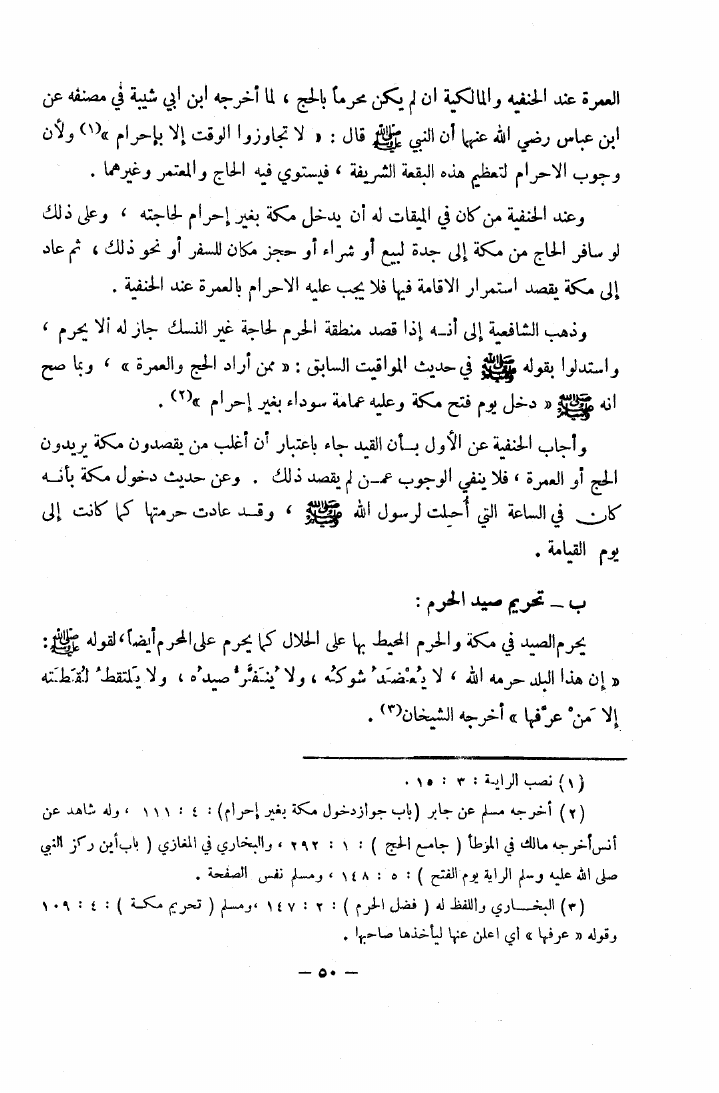 العمرة عند الحنفيه والمالكية ان لم يكن محرماً بالحج ، لما أخرجه ابن ابي شيبة في مصنفه عن
ابن عباس رضي الله عنهما أن النبي ﷺ قال : « لا تجاوزوا الوقت إلا بإحرام »(١) ولأن
وجوب الاحرام لتعظيم هذه البقعة الشريفة ، فيستوي فيه الحاج والمعتمر وغيرهما .
وعند الحنفية من كان في الميقات له أن يدخل مكة بغير إحرام لحاجته ، وعلى ذلك
لو سافر الحاج من مكة إلى جدة لبيع أو شراء أو حجز مكان للسفر أو نحو ذلك ، ثم عاد
إلى مكة يقصد استمرار الاقامة فيها فلا يجب عليه الاحرام بالعمرة عند الحنفية .
وذهب الشافعية إلى أنـه إذا قصد منطقة الحرم لحاجة غير النسك جاز له ألا يحرم ،
واستدلوا بقوله ﷺ في حديث المواقيت السابق : « ممن أراد الحج والعمرة » ، وبما صح
انه ﷺ « دخل يوم فتح مكة وعليه عمامة سوداء بغير إحرام »(٢) .
وأجاب الحنفية عن الأول بـأن القيد جاء باعتبار أن أغلب من يقصدون مكة يريدون
الحج أو العمرة ، فلا ينفي الوجوب عمـن لم يقصد ذلك . وعن حديث دخول مكة بأنـه
كان في الساعة التي أُحلت لرسول الله ﷺ ، وقـد عادت حرمتها كما كانت إلى
يوم القيامة .
ب ـ تحريم صيد الحرم :
يحرم الصيد في مكة والحرم المحيط بها على الحلال كما يحرم على المحرم أيضاً، لقوله ﷺ :
« إن هذا البلد حرمه الله ، لا يُعْضَدُ شوكُه ، ولا يُنَفَّرُ صيدُه ، ولا يَلتقطُ لُقَطَتَه
إلا مَنْ عرَّفها » أخرجه الشيخان(٣) .
(١) نصب الراية : ٣ : ١٥ .
(٢) أخرجه مسلم عن جابر (باب جواز دخول مكة بغير إحرام) : ٤ : ١١١ ، وله شاهد عن
أنس أخرجه مالك في الموطأ ( جامع الحج ) : ١ : ٢٩٢ ، والبخاري في المغازي ( باب أين ركز النبي
صلى الله عليه وسلم الراية يوم الفتح ) : ٥ : ١٤٨ ، ومسلم نفس الصفحة .
(٣) البخـاري واللفظ له ( فضل الحرم ) : ٢ : ١٤٧ ، ومسلم ( تحريم مكـة ) : ٤ : ١٠٩
وقوله « عرفها » اي اعلن عنها ليأخذها صاحبها .
— ٥٠ —